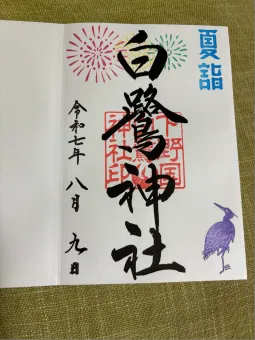 夏詣
白鷺神社
下野国
神社印
令和七年 八月 九日